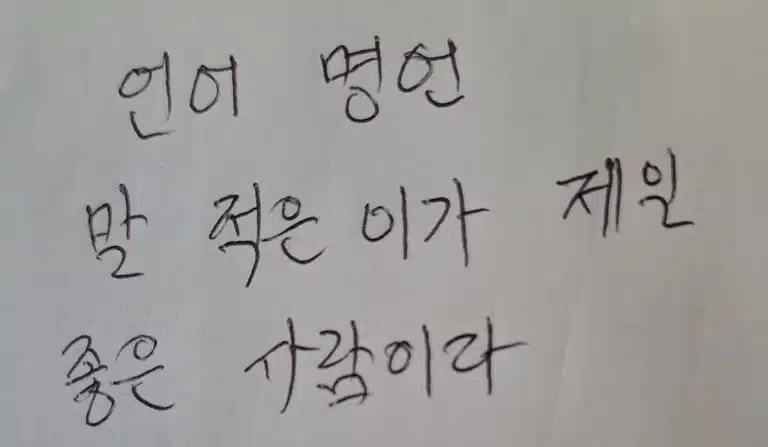 언어 명언
말 적은 이가 제일
좋은 사람이라